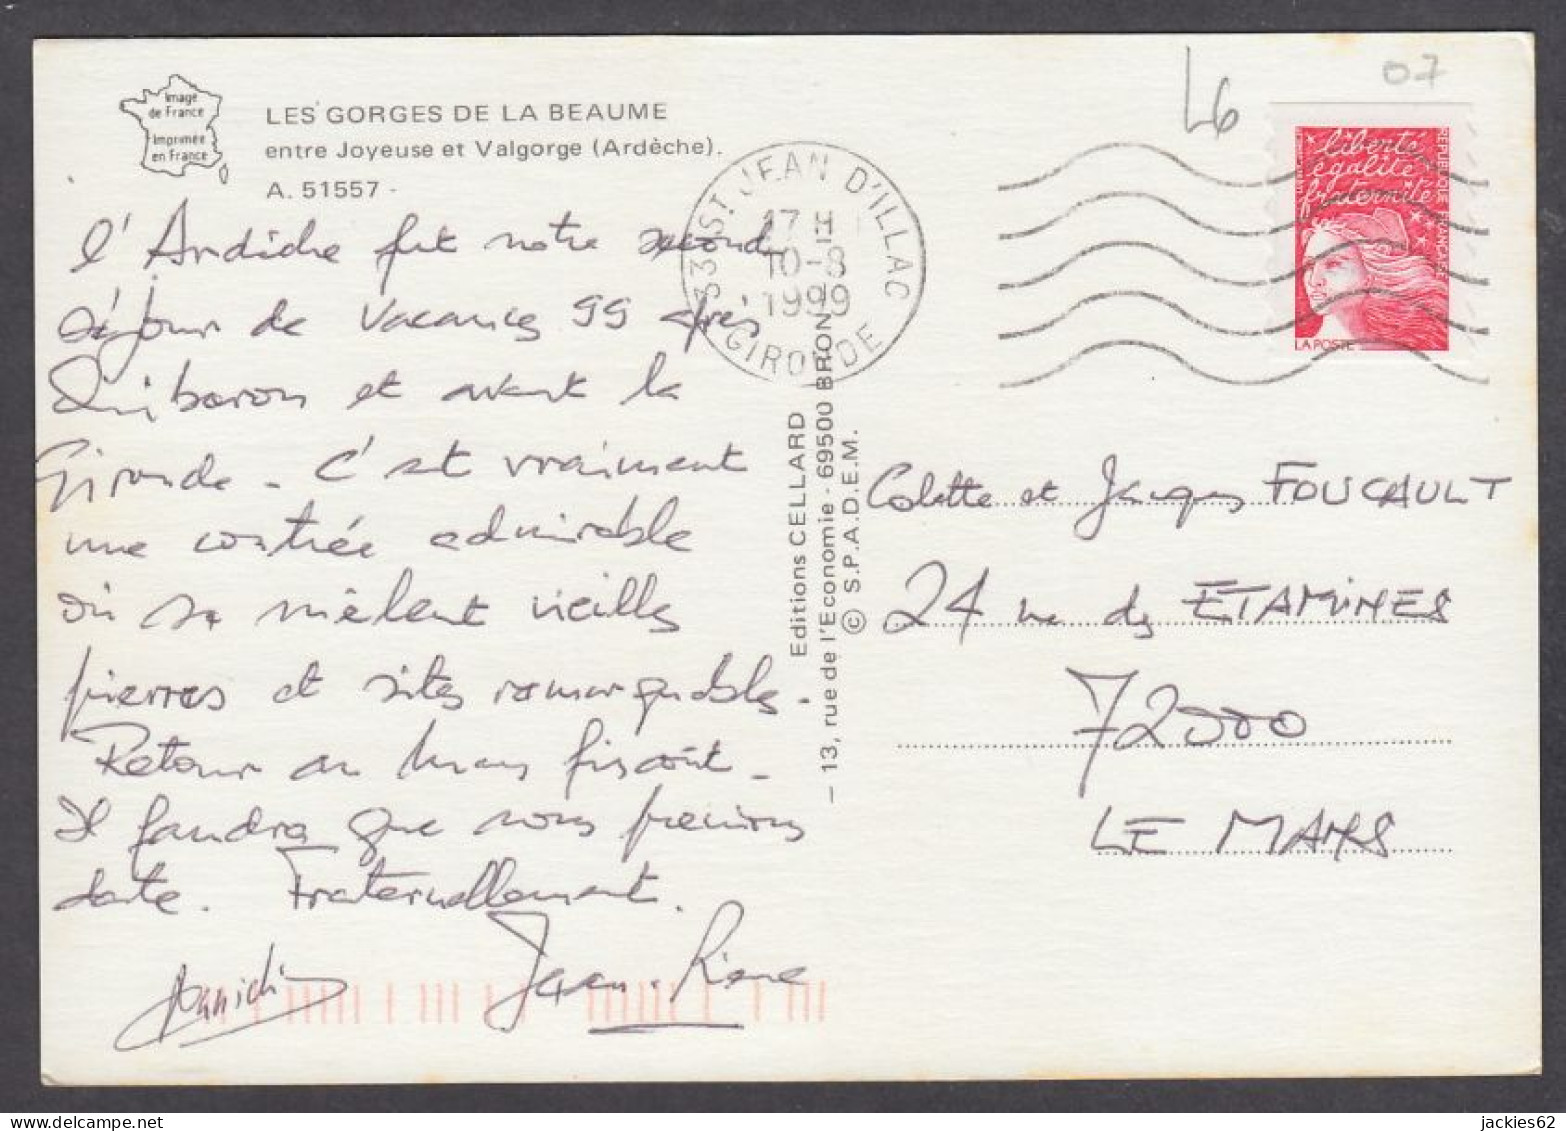 Image
de France
Imprimée
en France
LES GORGES DE LA BEAUME
entre Joyeuse et Valgorge (Ardèche).
A. 51557 -
l'Ardèche fut notre second
séjour de Vacances 99 après
Quiberon et avant la
Gironde - C'est vraiment
une contrée admirable
où se mêlent vieilles
pierres et sites remarquables.
Retour au Mans
Il faudra que nous prenions
date. Fraternellement.
Jean-Pierre
Editions CELLARD
- 13, rue de l'Economie - 69500 BRON
© S.P.A.D.E.M.
33 ST JEAN D'ILLAC
17 H
10-8
1999
GIRONDE
L6
07
liberté
égalité
fraternité
REPUBLIQUE FRANÇAISE
LA POSTE
Colette et Jacques FOUCAULT
24 rue des ETAMINES
72000
LE MANS
jackies62